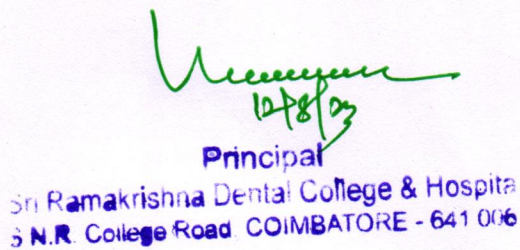 12/8/23
Principal
Sri Ramakrishna Dental College & Hospita
S N.R. College Road COIMBATORE - 641 006